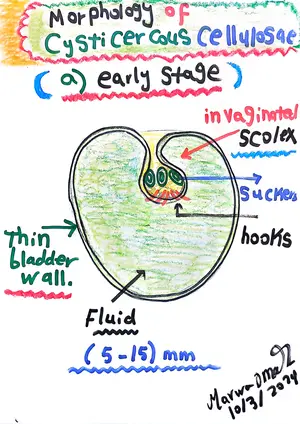 Morphology of
Cysticercous Cellulosae
(a) early stage)
invaginated
scolex
Suckers
hooks
Thin
bladder
wall.
Fluid
(5-15) mm
Marwa Omar
10/3/2024